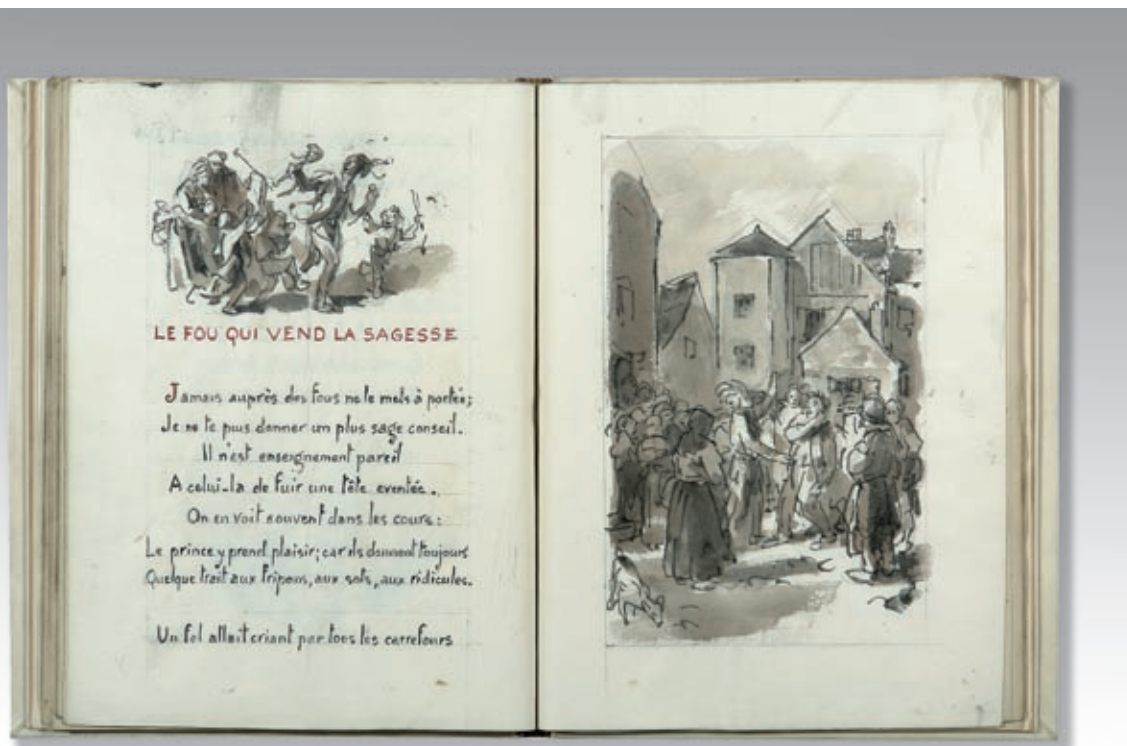 LE FOU QUI VEND LA SAGESSE
Jamais auprès des fous ne te mets à portée;
Je ne te puis donner un plus sage conseil.
Il n'est enseignement pareil
A celui-la de fuir une tête eventée.
On en voit souvent dans les cours:
Le prince y prend plaisir; car ils donnent toujours
Quelque trait aux fripons, aux sots, aux ridicules.
Un fol allait criant par tous les carrefours